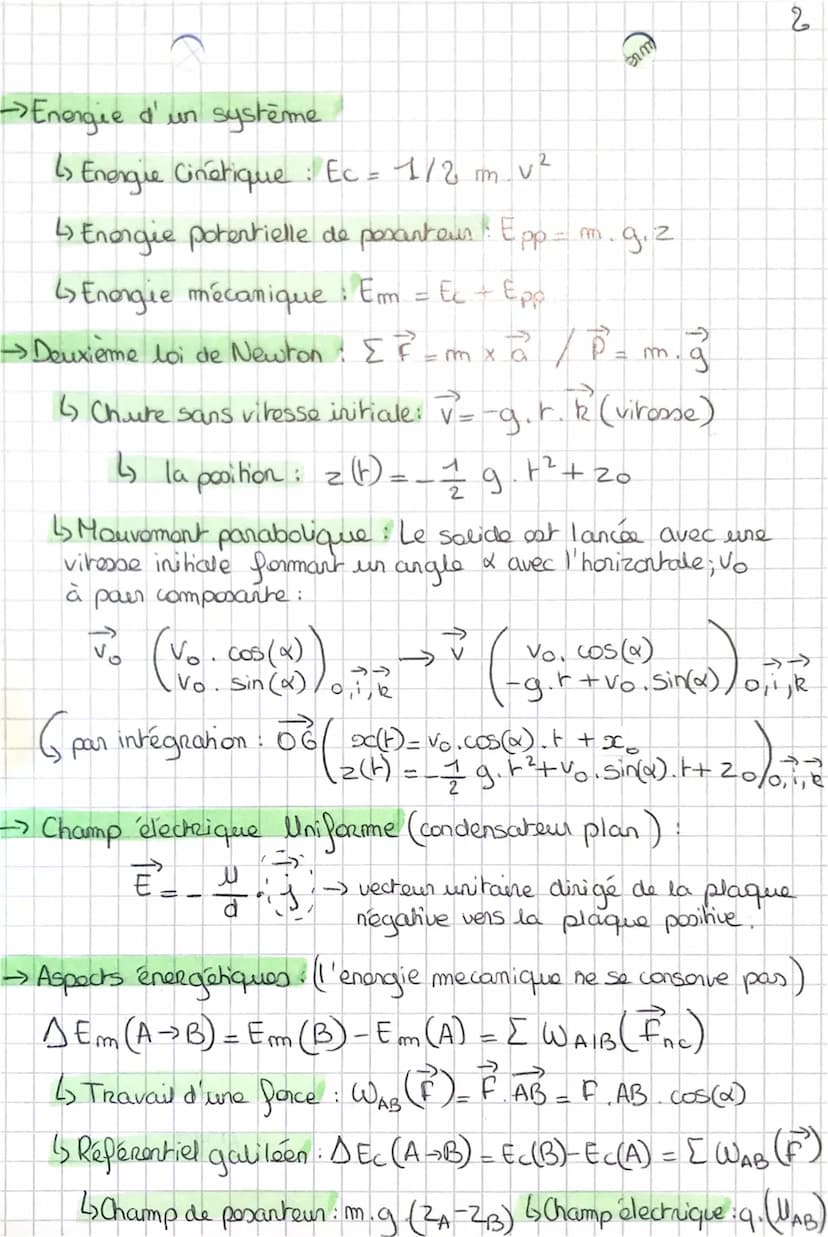 2
→ Energie d'un système
↳ Energie Cinétique : Ec = 1/2 m.v²
↳ Energie potentielle de pesanteur : Epp = m.g.z
↳ Energie mécanique : Em = Ec + Epp
→ Deuxième loi de Newton : Σ F⃗ = m x a⃗ / P⃗ = m.g⃗
↳ Chute sans vitesse initiale : v⃗ = -g.t.k⃗ (vitesse)
↳ la position : z(t) = -1/2 g.t² + z0
↳ Mouvement parabolique : Le solide est lancée avec une
vitesse initiale formant un angle α avec l'horizontale ; v0
à pour composante :
v⃗0 (v0.cos(α) v0.sin(α)) 0,i⃗,k⃗ → v⃗ (v0.cos(α) -g.t+v0.sin(α)) 0,i⃗,k⃗
↳ par intégration : OG⃗ (x(t)=v0.cos(α).t + x0
z(t) = -1/2 g.t²+v0.sin(α).t+z0) 0,i⃗,k⃗
→ Champ électrique Uniforme (condensateur plan) :
E⃗ = - U/d . j⃗ → vecteur unitaire dirigé de la plaque
négative vers la plaque positive.
→ Aspects énergétiques : (l'energie mecanique ne se conserve pas)
ΔEm(A→B) = Em(B) - Em(A) = Σ WA|B(F⃗nc)
↳ Travail d'une force : WAB(F⃗) = F⃗.AB⃗ = F.AB.cos(α)
↳ Référentiel galiléen : ΔEc(A→B) = Ec(B)-Ec(A) = Σ WAB(F⃗)
↳ Champ de pesanteur : m.g.(zA-zB) ↳ Champ électrique : q.(UAB)